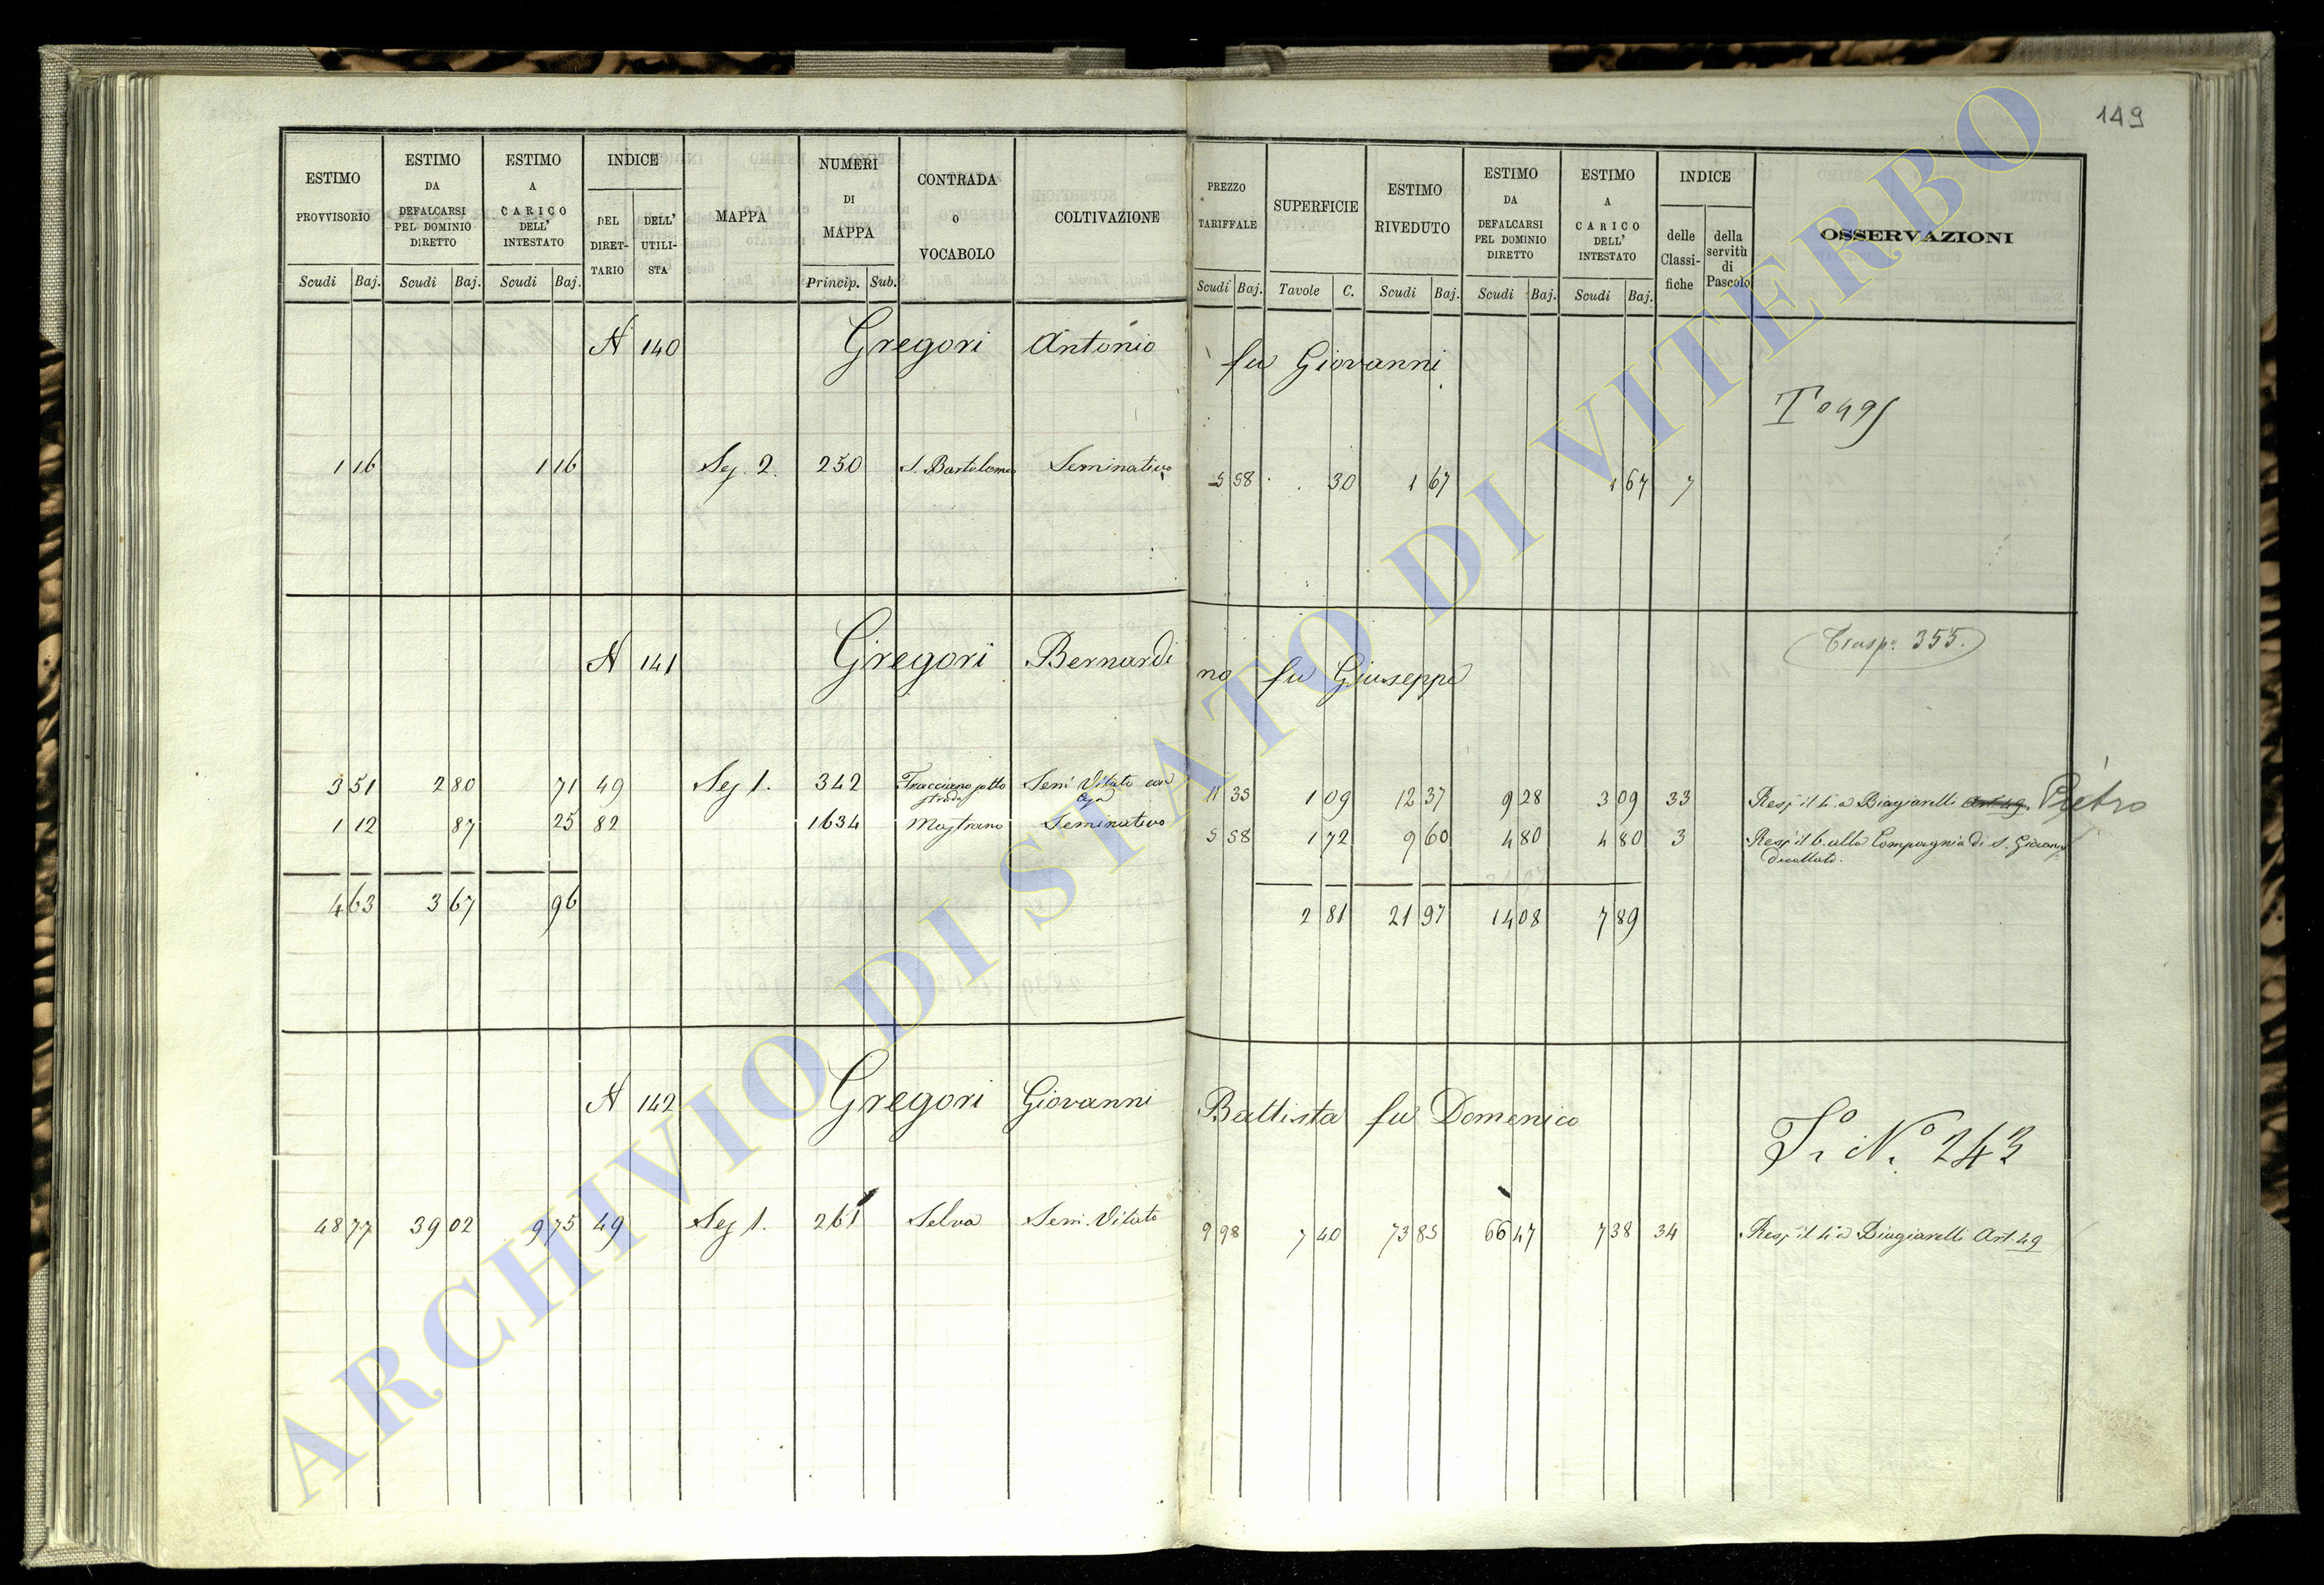 149
ESTIMO PROVVISORIO Scudi Baj.
ESTIMO DA DEFALCARSI PEL DOMINIO DIRETTO Scudi Baj.
ESTIMO A CARICO DELL' INTESTATO Scudi Baj.
INDICE DEL DIRET-TARIO DELL' UTILI-STA
MAPPA
NUMERI DI MAPPA Princip. Sub.
CONTRADA O VOCABOLO
COLTIVAZIONE
PREZZO TARIFFALE Scudi Baj.
SUPERFICIE Tavole C.
ESTIMO RIVEDUTO Scudi Baj.
ESTIMO DA DEFALCARSI PEL DOMINIO DIRETTO Scudi Baj.
ESTIMO A CARICO DELL' INTESTATO Scudi Baj.
INDICE delle Classi-fiche della servitù di Pascolo
OSSERVAZIONI
A 140 Gregori Antonio fu Giovanni
1 16 1 16 Sez. 2. 250 S. Bartolomeo Seminativo 5 58 30 1 67 1 67 7
A 141 Gregori Bernardi no fu Giuseppe
355.
3 51 2 80 71 49 Sez 1. 342 sotto strada Sem. Vitato con 11 35 1 09 12 37 9 28 3 09 33 Resp. il 4.º a Biagiarelli Art. 49. Pietro
1 12 87 25 82 1634 Mastrano Seminativo 5 58 1 72 9 60 4 80 4 80 3 Resp. il 6. alla Compagnia di S. Giovanni
Decollato.
4 63 3 67 96 2 81 21 97 14 08 7 89
A 142 Gregori Giovanni Battista fu Domenico
Nº 243
48 77 39 02 9 75 49 Sez 1. 261 Selva Sem. Vitato 9 98 7 40 73 85 66 47 7 38 34 Resp. il 4.º a Biagiarelli Art. 49
ARCHIVIO DI STATO DI VITERBO